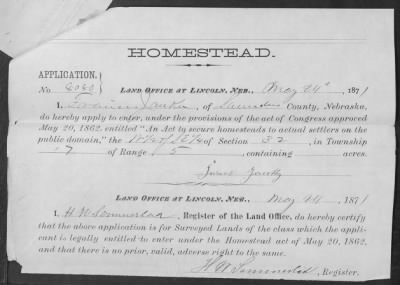 HOMESTEAD.
APPLICATION.
No. 6060
LAND OFFICE AT LINCOLN, NEB., May 24th, 1871
I, Jouki, of Saunders County, Nebraska,
do hereby apply to enter, under the provisions of the act of Congress approved
May 20, 1862, entitled "An Act to secure homesteads to actual settlers on the
public domain," the of Section 32, in Township
17 of Range 5, containing acres.
LAND OFFICE AT LINCOLN, NEB., May 24, 1871
I, H W Sommerlad, Register of the Land Office, do hereby certify
that the above application is for Surveyed Lands of the class which the appli-
cant is legally entitled to enter under the Homestead act of May 20, 1862,
and that there is no prior, valid, adverse right to the same.
H W Sommerlad, Register.